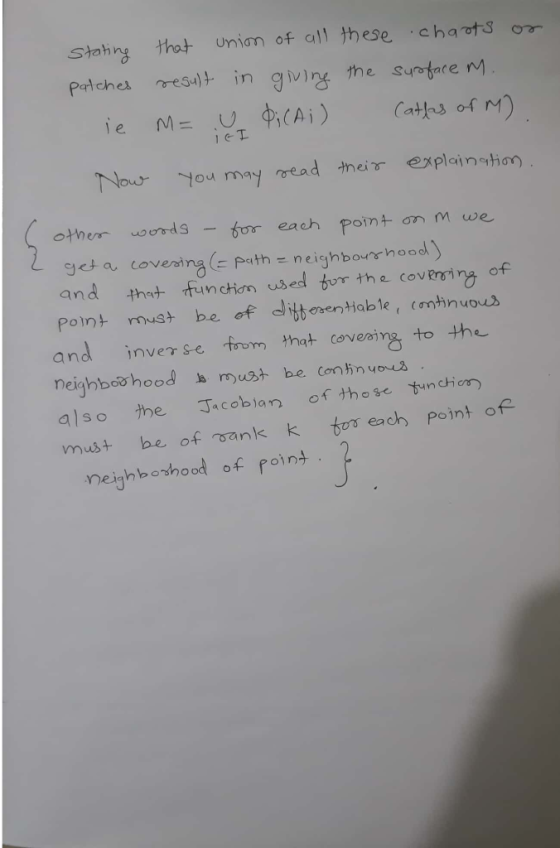 stating that union of all these charts or
patches result in giving the surface M.
ie M = ∪ i∈I ϕi(Ai) (atlas of M)
Now you may read their explaination.
{ other words - for each point on M we
get a covering (= path = neighbourhood)
and that function used for the covering of
point must be of differentiable, continuous
and inverse from that covering to the
neighborhood must be continuous.
also the Jacobian of those function
must be of rank k for each point of
neighborhood of point. }